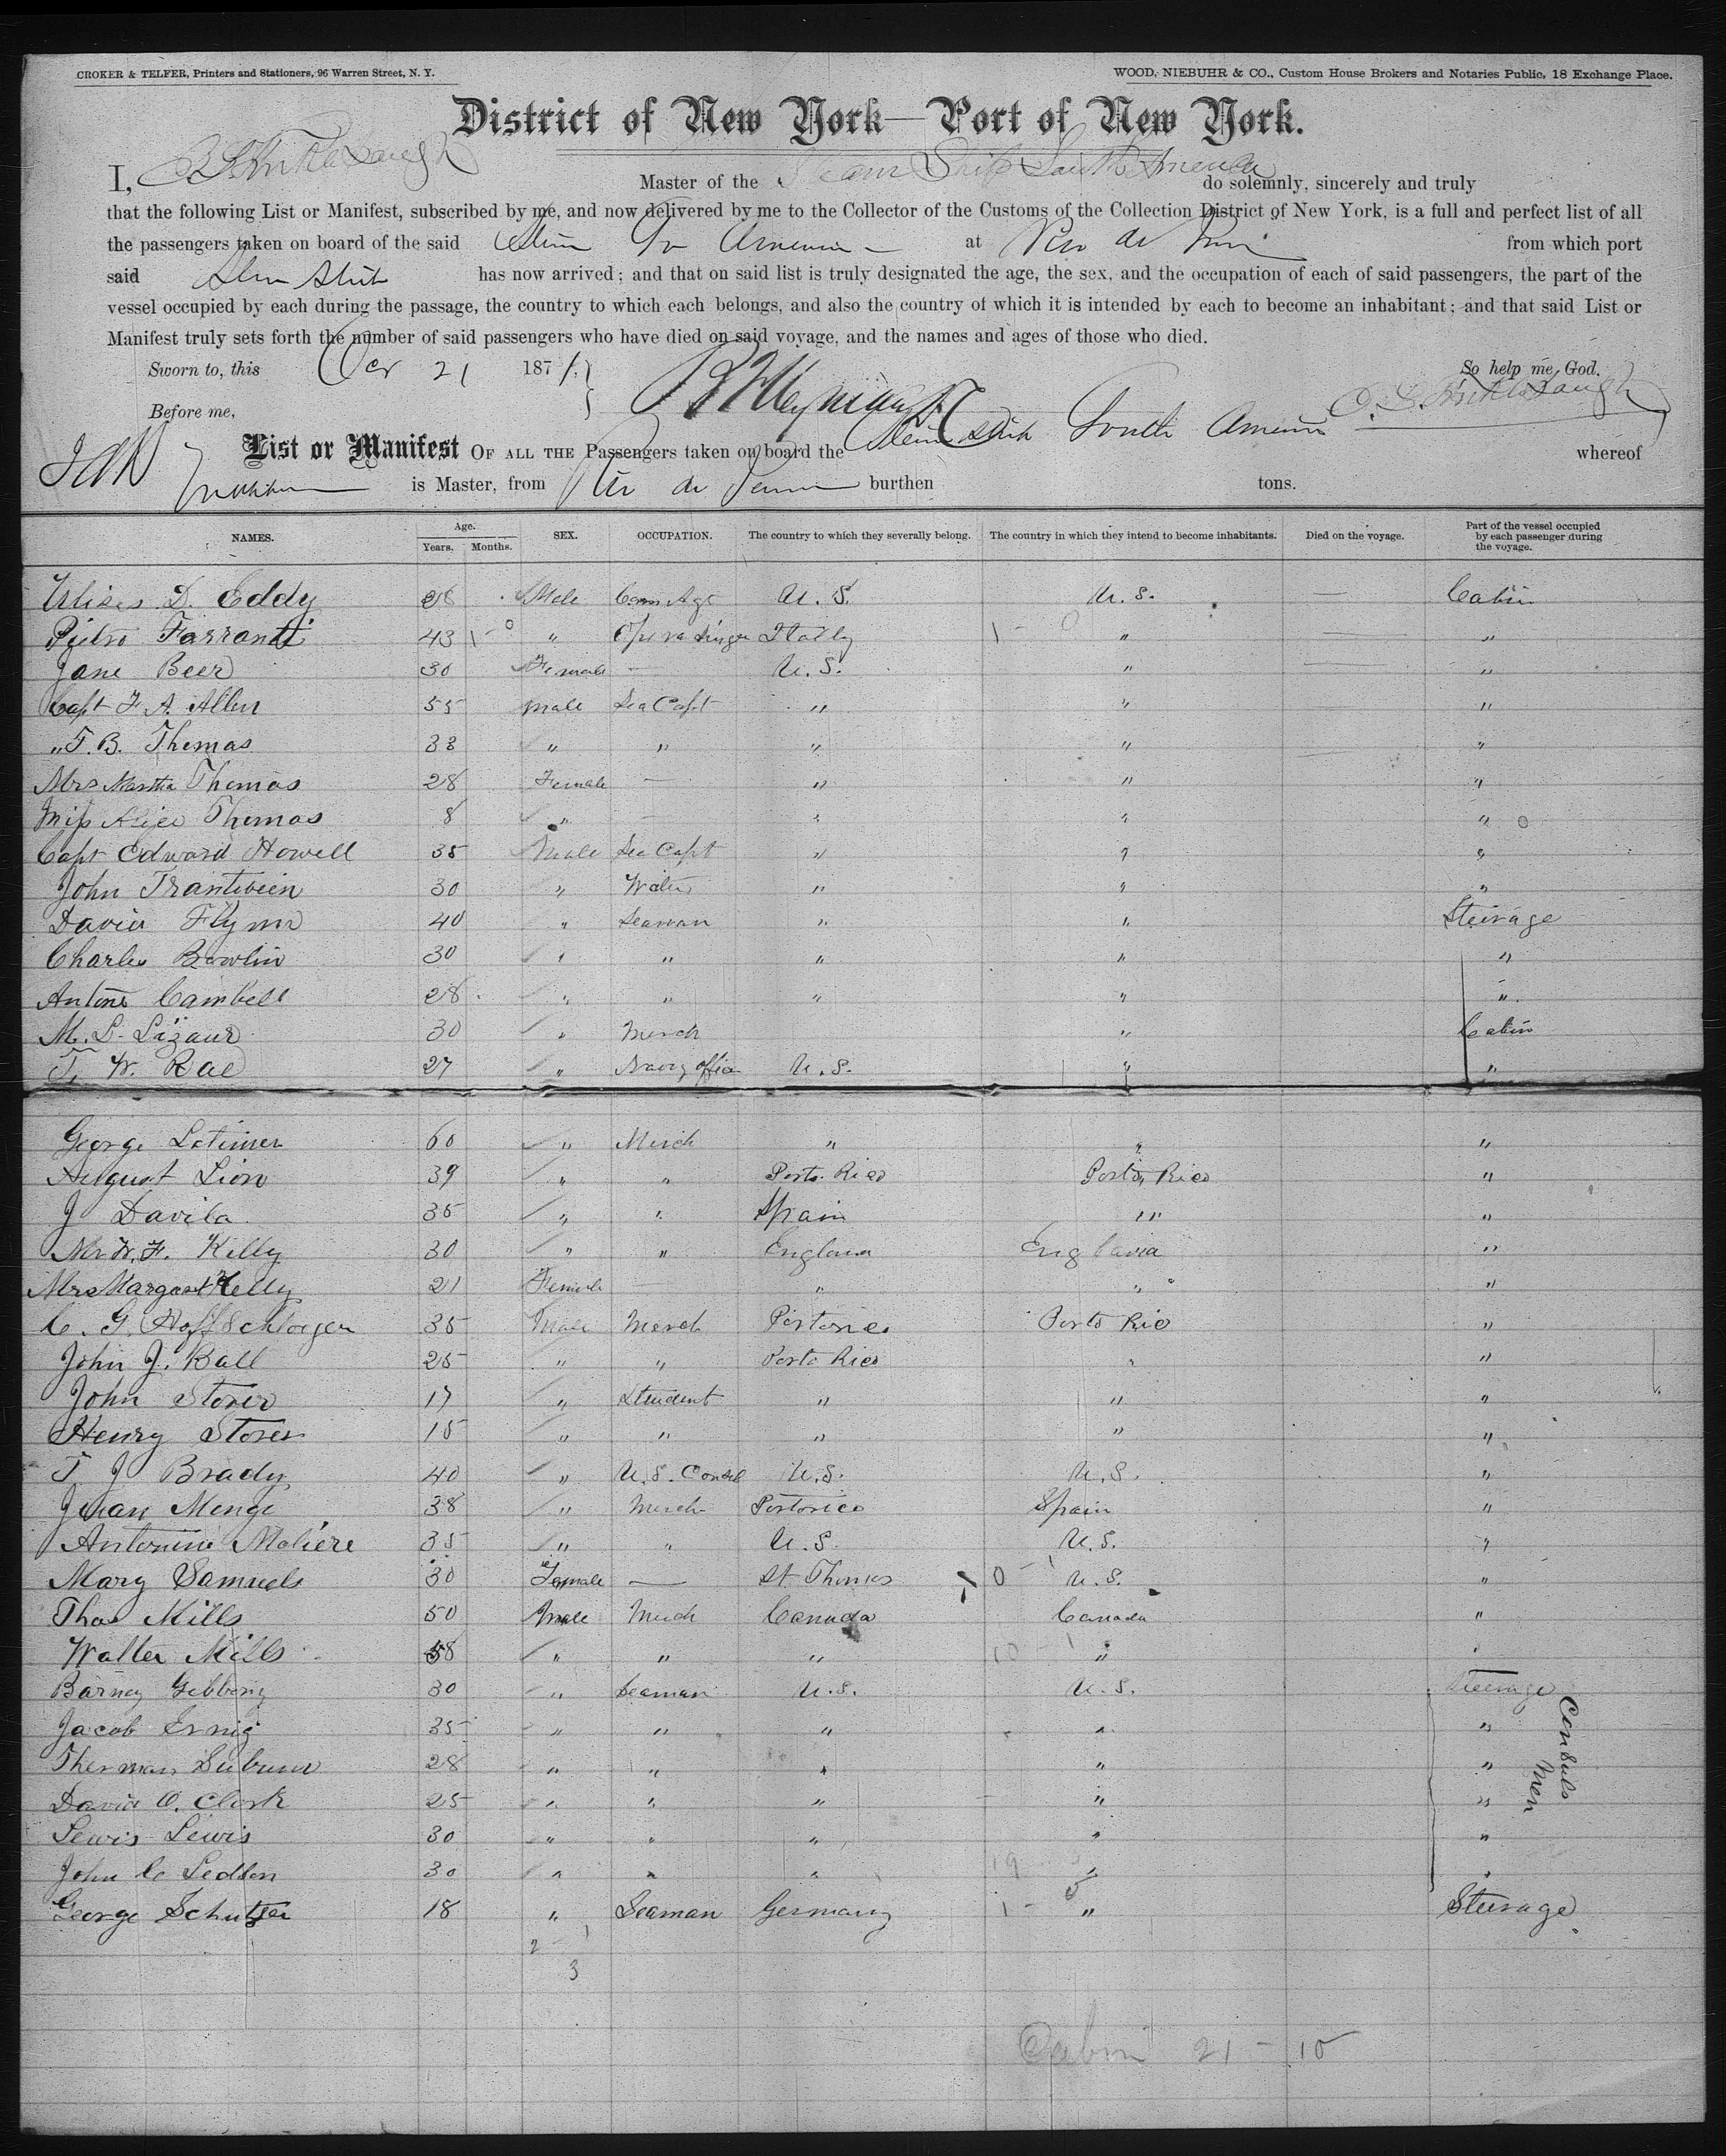 CROKER & TELFER, Printers and Stationers, 96 Warren Street, N. Y. WOOD, NIEBUHR & CO., Custom House Brokers and Notaries Public, 18 Exchange Place.
District of New York—Port of New York.
I, Master of the Steam Ship South America do solemnly, sincerely and truly
that the following List or Manifest, subscribed by me, and now delivered by me to the Collector of the Customs of the Collection District of New York, is a full and perfect list of all
the passengers taken on board of the said at Rio de from which port
said has now arrived; and that on said list is truly designated the age, the sex, and the occupation of each of said passengers, the part of the
vessel occupied by each during the passage, the country to which each belongs, and also the country of which it is intended by each to become an inhabitant; and that said List or
Manifest truly sets forth the number of said passengers who have died on said voyage, and the names and ages of those who died.
Sworn to, this Oct 21 1871. So help me God.
Before me,
List or Manifest OF ALL THE Passengers taken on board the South America whereof
is Master, from Rio de burthen tons.
NAMES. Age. Years. Months. SEX. OCCUPATION. The country to which they severally belong. The country in which they intend to become inhabitants. Died on the voyage. Part of the vessel occupied by each passenger during the voyage.
Ulises D. Eddy 28 Male Com Agt U. S. U. S. — Cabin
Pietro Farranti 43 " Opera Singer Itally " "
Jane Beer 30 Female — U. S. " — "
Capt F. A. Allen 55 Male Sea Capt " " "
" T. B. Thomas 33 " " " " "
Mrs Martha Thomas 28 Female — " " "
Miss Alice Thomas 8 " — " " "
Capt Edward Howell 35 Male Sea Capt " " "
John Trantwein 30 " Waiter " " "
David Flynn 40 " Seaman " " Steirage
Charles Bowlin 30 " " " " "
Antone Cambell 28 " " " " "
M. L. Lizaur 30 " Merch " Cabin
T. W. Rae 27 " Navy office U. S. " "
George Latimer 60 " Merch " " "
August Lion 39 " " Porto Rico Porto Rico "
J Davila 35 " " Spain " "
Mr W. F. Kelly 30 " " England England "
Mrs Margaret Kelly 21 Female — " " "
C. G. Hoffschloeger 35 Male Merch Portorico Porto Rico "
John J. Ball 25 " " Porto Rico " "
John Storer 17 " Student " " "
Henry Storer 15 " " " " "
T J Brady 40 " U. S. Consl U. S. U. S. "
Juan Menge 38 " Merch Portorico Spain "
Antonine Moliere 35 " " U. S. U. S. "
Mary Samuels 30 Female — St. Thomas U. S. "
Thos Mills 50 Male Merch Canada Canada "
Walter Mills 58 " " " " "
Barney Gibbons 30 " Seaman U. S. U. S. Steerage
Jacob Ernig 35 " " " " "
Therman 28 " " " " "
David O. Clark 25 " " " " "
Lewis Lewis 30 " " " " "
John C Ledson 30 " " " " "
Consuls Men
George Schutzer 18 " Seaman Germany " Steerage
2 - 1
3
Cabin 21 - 15